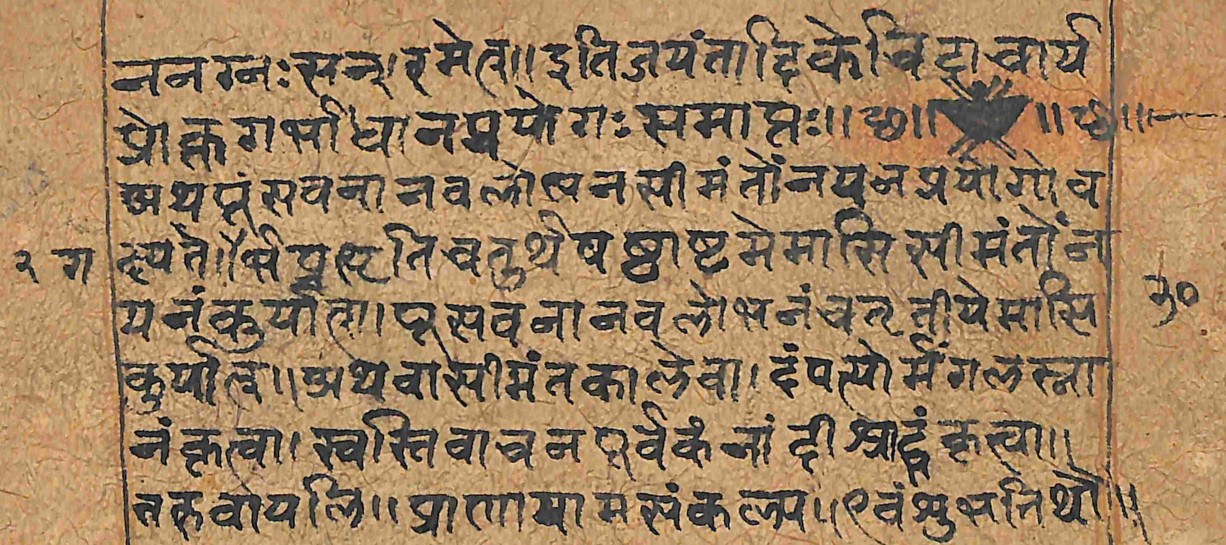 ननग्नःसन्।रमेत्॥इतिजयंतादिकेचिदाचार्य
प्रोक्तगर्भाधानप्रयोगःसमाप्तः॥छ॥ ॥छ॥
अथपुंसवनानवलोभनसीमंतोंनयनप्रयोगोव
२ ग क्ष्यते॥र्भप्रभृतिचतुर्थेषष्ठाष्टमेमासिसीमंतोंन
यनंकुर्यात्॥पुंसवनानवलोभनंचतृतीयेमासि ३०
कुर्यात्॥अथवासीमंतकालेवा।दंपत्योर्मंगलस्ना
नंकृत्वा।स्वस्तिवाचनपूर्वकंनांदीश्राद्धंकृत्वा॥
॥प्राणायामसंकल्प॥एवंशुभतिथौ॥